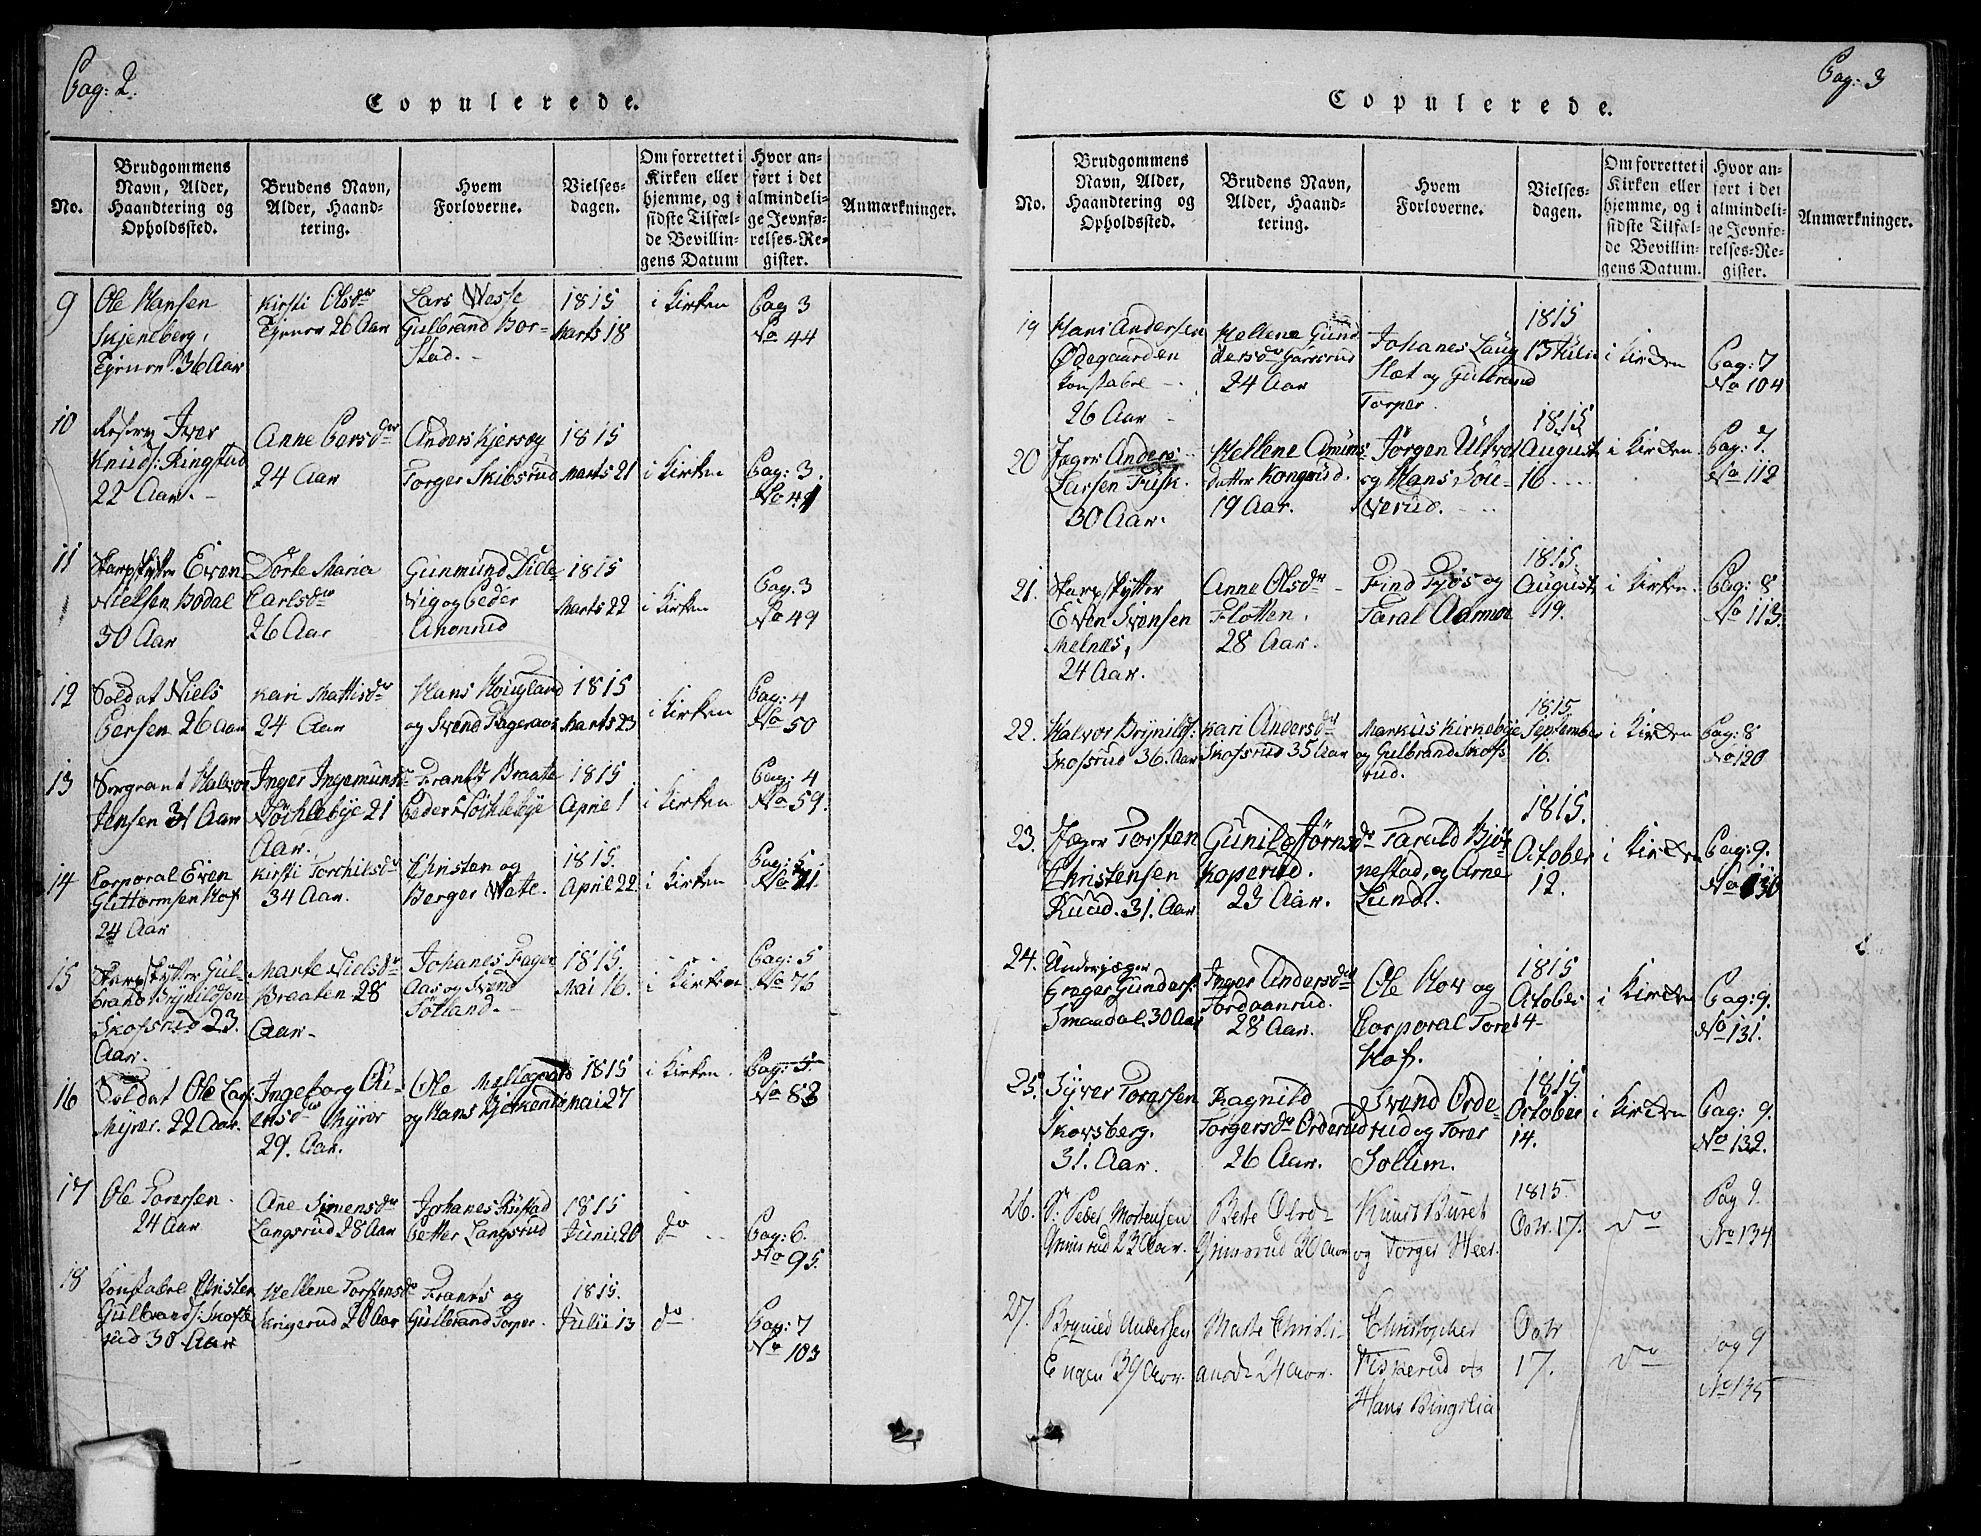 Pag: 2.
Copulerede.
No.
Brudgommens
Navn, Alder,
Haandtering og
Opholdssted.
Brudens Navn,
Alder, Haand-
tering.
Hvem
Forloverne.
Vielses-
dagen.
Om forrettet i
Kirken eller
hjemme, og i
sidste Tilfæl-
de Bevillin-
gens Datum
Hvor an-
ført i det
almindeli-
ge Jevnfø-
relses-Re-
gister.
Anmærkninger.
9
Ole Hansen
Skjeneberg,
Tjener 36 Aar
Kirsti Olsdr
Tjener 26 Aar
Lars Wesse
Gulbrand Bor-
stad.
1815
Marts 18
i Kirken
Pag 3
No 44
10
Iver
Knuds: Ringstad
22 Aar.
Anne Persdr
24 Aar
Anders Kjers og
Torger Skibsrud
1815
Marts 21
i Kirken
Pag: 3.
11
Skarpskytter Even
Nielsen Bodal
30 Aar
Dorte Maria
Carlsdr
26 Aar
Gunmund Lille-
vig og Peder
1815
Marts 22
i Kirken
Pag: 3
No 49
12
Soldat Niels
Persen 26 Aar
Kari Mattisdr
24 Aar
Hans Hougland
og Svend Fageraas
1815
Marts 23
i Kirken
Pag: 4
No 50
13
Sergeant Halvor
Jensen 31 Aar
Inger Ingemunds
Nöchlebÿe 21
Aar.
Frants Braate
Peder Nöchlebÿe
1815
April 1
i Kirken
Pag: 4
No 59.
14
Corporal Even
Guttormsen Hof
24 Aar
Kirsti Torchilsdr
34 Aar.
Christen og
Berger Wete.
1815.
April 22
i Kirken
Pag: 5
No 71.
15
Skarpskytter Gul-
brand Brÿnildsen
Skofsrud 23.
Aar.
Marte Nielsdr
Braaten 28
Aar
Johanes Fager
Aas og Svend
Totland.
1815.
Mai 16.
i Kirken
Pag: 5
No 76
16
Soldat Ole Lars:
Mÿrer. 22 Aar.
Ingeborg
Mÿrer
29. Aar.
Ole Mellegaard
og Hans Bjerkende
1815
Mai 27
i Kirken.
Pag: 5
No 83
17
Ole Torersen
24 Aar
Ane Simensdr
Langsrud 28 Aar
Johanes Rustad
Petter Langsrud
1815
Junii 20
do
Pag: 6.
No 95.
18
Konstabel Christen
Gulbrands: Skofs
rud 30 Aar
Hellene Torstensdr
Krigerud 20 Aar
Frants og
Gulbrand Torper.
1815.
Julii 13
do
Pag: 7
No 103
Pag: 3
Copulerede.
No.
Brudgommens
Navn, Alder,
Haandtering og
Opholdssted.
Brudens Navn,
Alder, Haand-
tering.
Hvem
Forloverne.
Vielses-
dagen.
Om forrettet i
Kirken eller
hjemme, og i
sidste Tilfæl-
de Bevillin-
gens Datum.
Hvor an-
ført i det
almindeli-
ge Jevnfø-
relses-Re-
gister.
Anmærkninger.
19
Hans Andersen
Ödegaarden
Konstabel
26 Aar
Hellene Gund
dersdr Garsrud
24 Aar
Johanes Laug
Slæt og Gulbrand
Torper.
1815
13 Julii
i Kirken
Pag: 7
No 104
20
Jæger Anders
Larsen Fusk.
30 Aar.
Hellene Amuns
datter Kongsrud.
19 Aar.
Jörgen Ultvet
og Hans Sou-
verud.
1815
August
16
i Kirken.
Pag: 7.
No 112
21.
Skarpskytter
Even Svensen
Melnæs,
24 Aar.
Anne Olsdr
Flotten,
28 Aar.
Find Fjös og
Taral Aamot
1815.
August
19.
i Kirken.
Pag: 8
No 113.
22.
Halvor Brÿnilds:
Skofsrud 36. Aar
Kari Andersdr
Skofsrud 35 Aar
Markus Kirkebÿe
og Gulbrand Skofs
rud.
1815.
September
16.
i Kirken
Pag: 8
No 120
23.
Jæger Torsten
Christensen
Ruud. 31. Aar
Gunild Jörnsdr
Koperud.
23 Aar.
Tarald Bjö-
nestad, og Arne
Lund.
1815.
October
12.
i Kirken
Pag: 9.
No 130
24.
Underjæger
Trager Gunders:
Smaadal. 30 Aar
Inger Andersdr
Tordaanrud.
28 Aar.
Ole Hov og
Corporal Tore
Hof.
1815
October
14
i Kirken
Pag: 9.
No 131.
25.
Syver Torersen
Skovsberg.
31. Aar.
Ragnild
Torgersdr Orderud
26 Aar.
Svend Orde-
rud og Torer
Solum.
1815
October
14.
i Kirken
Pag: 9.
No 132.
26.
S: Peder Mortensen
Grimsrud 23 Aar.
Berte Olsdr
Grimsrud 20 Aar
Knud Buret
og Torger Heer.
1815.
Octr. 17.
do
Pag 9.
No 134
27.
Brynild Andersen
Engen 39 Aar.
Marte Christi
ansdr 24 Aar.
Christopher
Fiskerud og
Hans Bingslia
Octr
17.
do
Pag 9
No 135